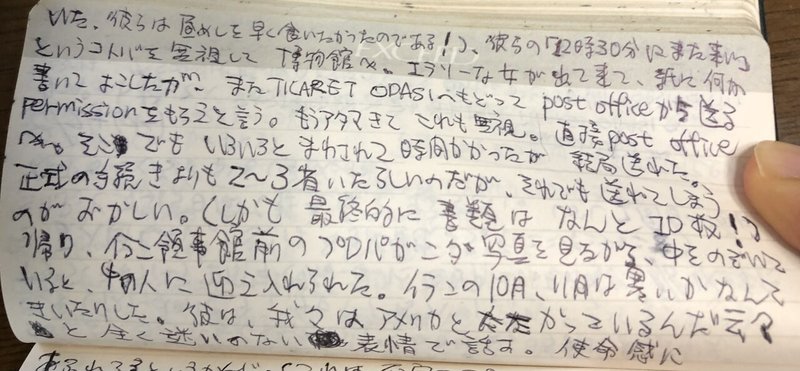 いた。彼らは昼めしを早く食いたかったのである!)、彼らの「12時30分にまた来い」
というコトバを無視して博物館へ。エラソーな女が出て来て、紙に何か
書いてよこしたが、またTICARET ODASIへもどってpost officeから送る
permissionをもらえと言う。もうアタマきてこれも無視。直接post office
へ。そこでもいろいろとまわされて時間かかったが結局送れた。
正式の手続きよりも2〜3省いたらしいのだが、それでも送れてしまう
のがおかしい。(しかも最終的に書類はなんと10枚!)
帰り、イラン領事館前のプロパガンダ写真を見ながら、中をのぞいて
いると、中の人に迎え入れられた。イランの10月、11月は暑いかなんて
きいたりした。彼は、我々はアメリカとたたかっているんだ云々
と全く迷いのない表情で話す。使命感に